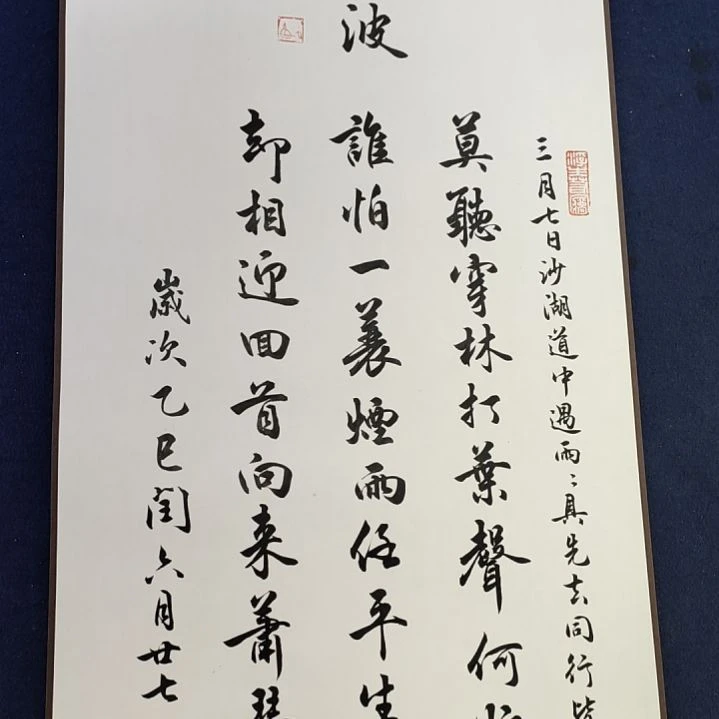 波
三月七日沙湖道中遇雨〻具先去同行皆
莫聽穿林打葉聲何
誰怕一蓑煙雨任平生
却相迎囬首向来蕭瑟
歲次乙巳閏六月廿七